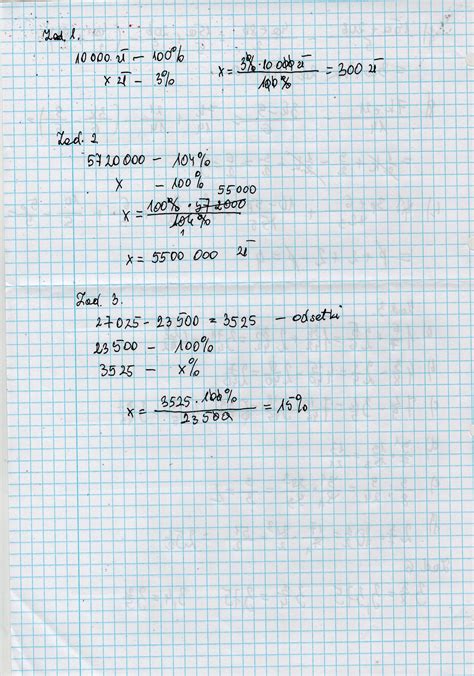 Zad. 1.
10 000 zł — 100%
x zł — 3%
x = 3% · 10 000 zł / 100% = 300 zł
Zad. 2
5720000 — 104%
x — 100%
55000
x = 100% · 572000 / 104%
1
x = 5500 000 zł
Zad. 3.
27025 – 23 500 = 3525 — odsetki
23 500 — 100%
3525 — x%
x = 3525 · 100% / 23 500 = 15%